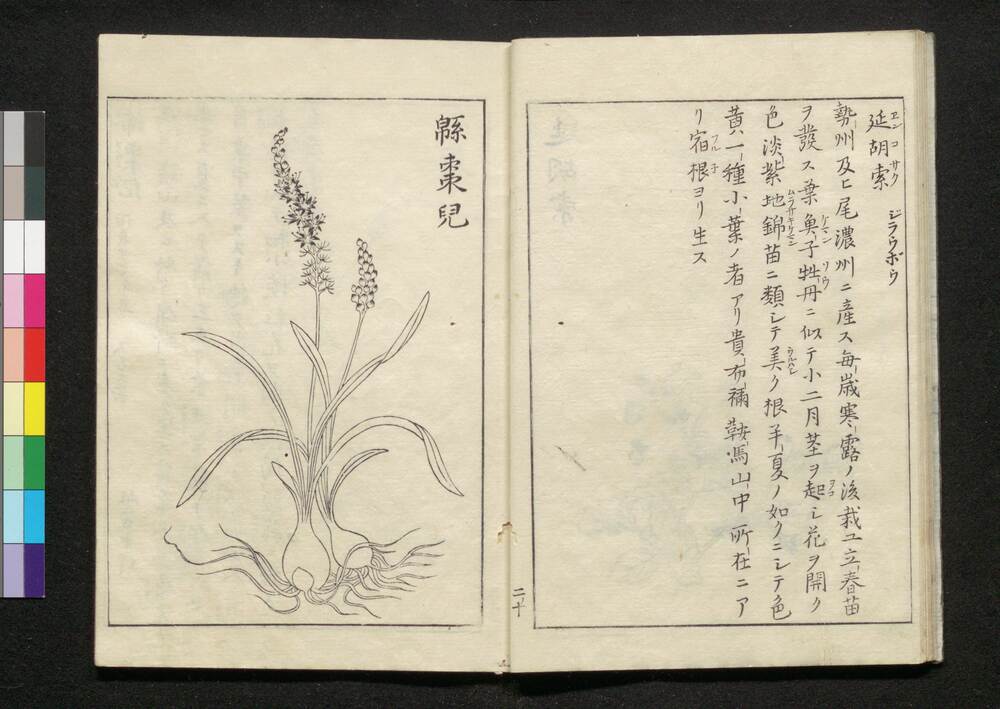 延胡索 ヱンコサク ジラウボウ
勢州及ヒ尾濃州ニ産ス毎歳寒露ノ後栽ユ立春苗
ヲ發ス葉𩵋子牡丹ニ似テ小二月茎ヲ起シ花ヲ開ク
色淡紫地錦苗ニ類シテ美ク根半夏ノ如クニシテ色
黄一種小葉ノ者アリ貴布禰鞍馬山中所在ニア
リ宿根ヨリ生ス
緜棗兒
二十